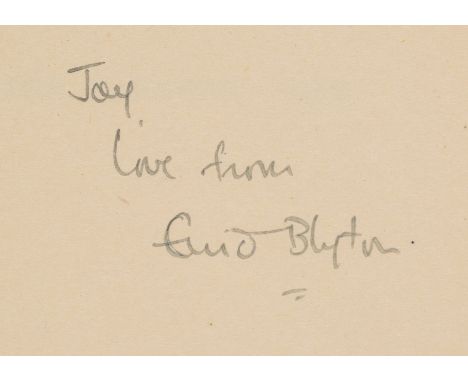 Joy
love from
Enid Blyton